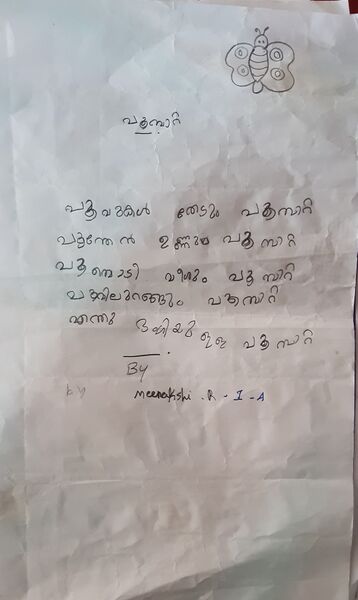 പൂമ്പാറ്റ
പൂവുകൾ തേടും പൂമ്പാറ്റ
പൂന്തേൻ ഉണ്ണും പൂമ്പാറ്റ
പൂമ്പൊടി വീശും പൂമ്പാറ്റ
പൂവിലുറങ്ങും പൂമ്പാറ്റ
എന്തു ഭംഗിയു ഈ പൂമ്പാറ്റ
By
by Meenakshi . R - I - A